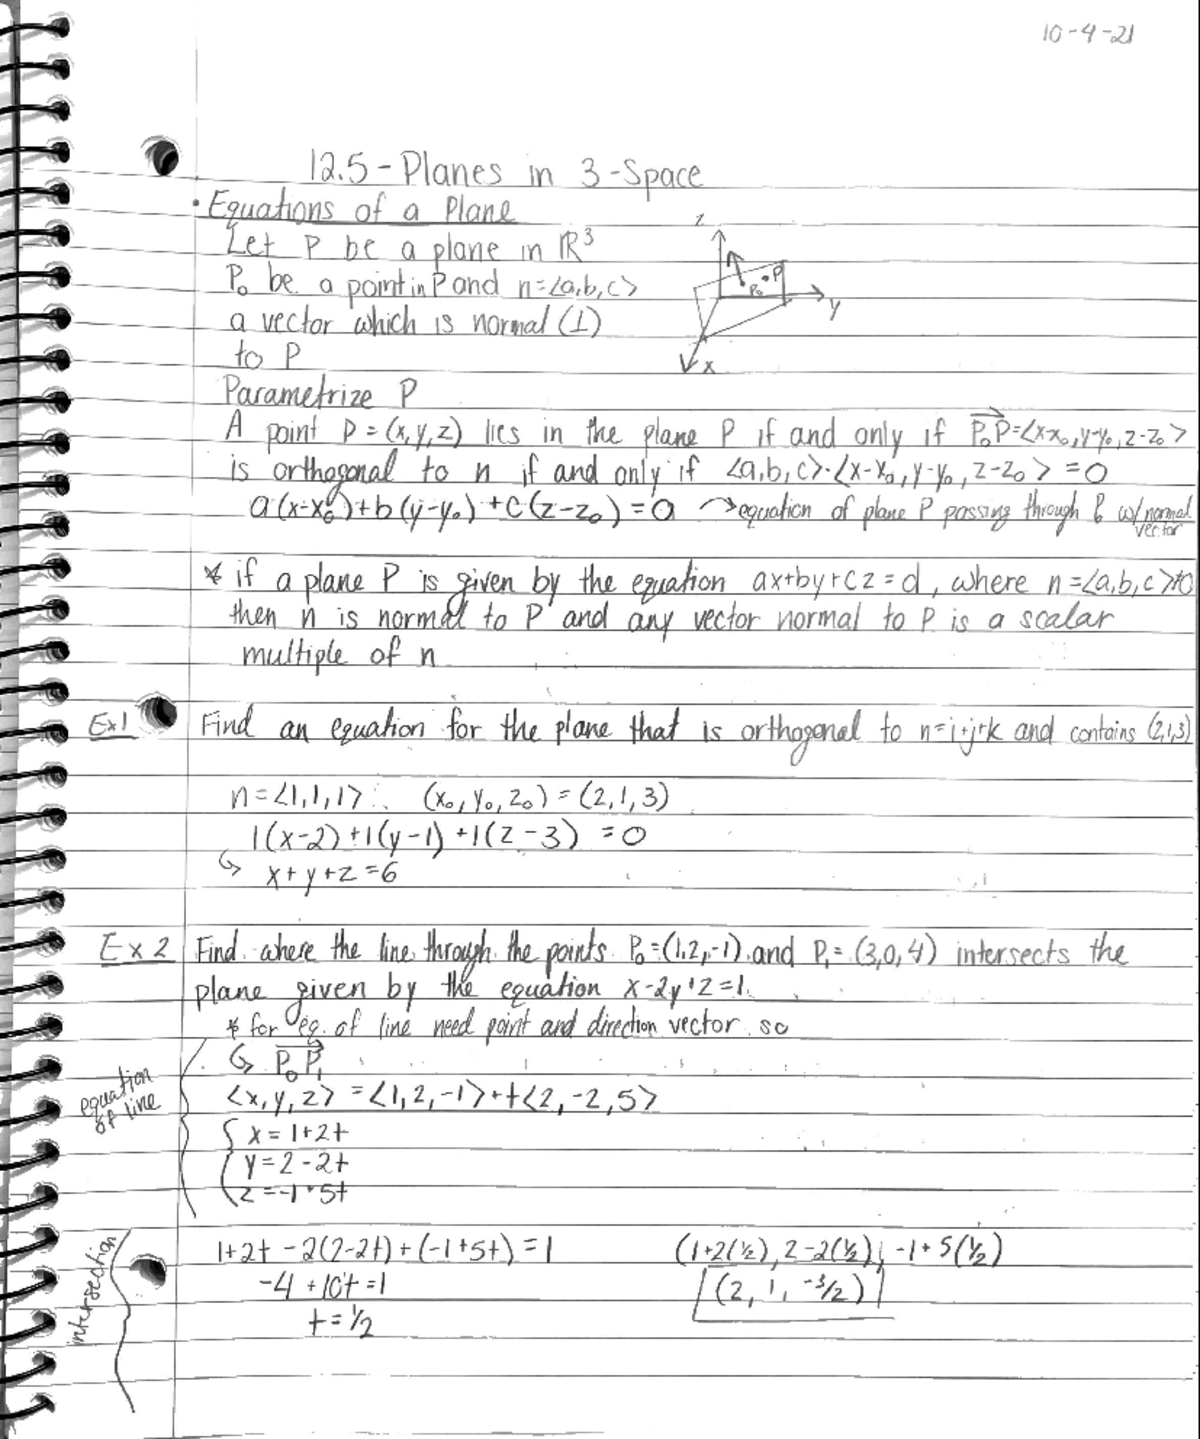 10-4-21
12.5-Planes in 3-Space
• Equations of a Plane
Let P be a plane in ℝ³
P₀ be a point in P and n=<a,b,c>
a vector which is normal (⊥)
to P
z
P
P₀
y
x
Parametrize P
A point P = (x,y,z) lies in the plane P if and only if P₀P=<x-x₀,y-y₀,z-z₀>
is orthogonal to n if and only if <a,b,c>·<x-x₀,y-y₀,z-z₀> = 0
a(x-x₀)+b(y-y₀)+c(z-z₀)=0 →equation of plane P passing through P₀ w/normal
vector
* if a plane P is given by the equation ax+by+cz=d, where n=<a,b,c>≠0
then n is normal to P and any vector normal to P is a scalar
multiple of n
Ex1 Find an equation for the plane that is orthogonal to n=i+j+k and contains (2,1,3)
n=<1,1,1> (x₀,y₀,z₀)=(2,1,3)
1(x-2)+1(y-1)+1(z-3) =0
↳ x+y+z=6
Ex 2 Find where the line through the points P₀=(1,2,-1) and P₁=(3,0,4) intersects the
plane given by the equation x-2y+z=1.
* for eq. of line need point and direction vector so
↳ P₀P₁
equation
of line
<x,y,z> = <1,2,-1>+t<2,-2,5>
{ x=1+2t
y=2-2t
z=-1+5t
intersection
1+2t-2(2-2t)+(-1+5t)=1 (1+2(½), 2-2(½), -1+5(½))
-4+10t=1 (2, 1, -3/2)
t=½